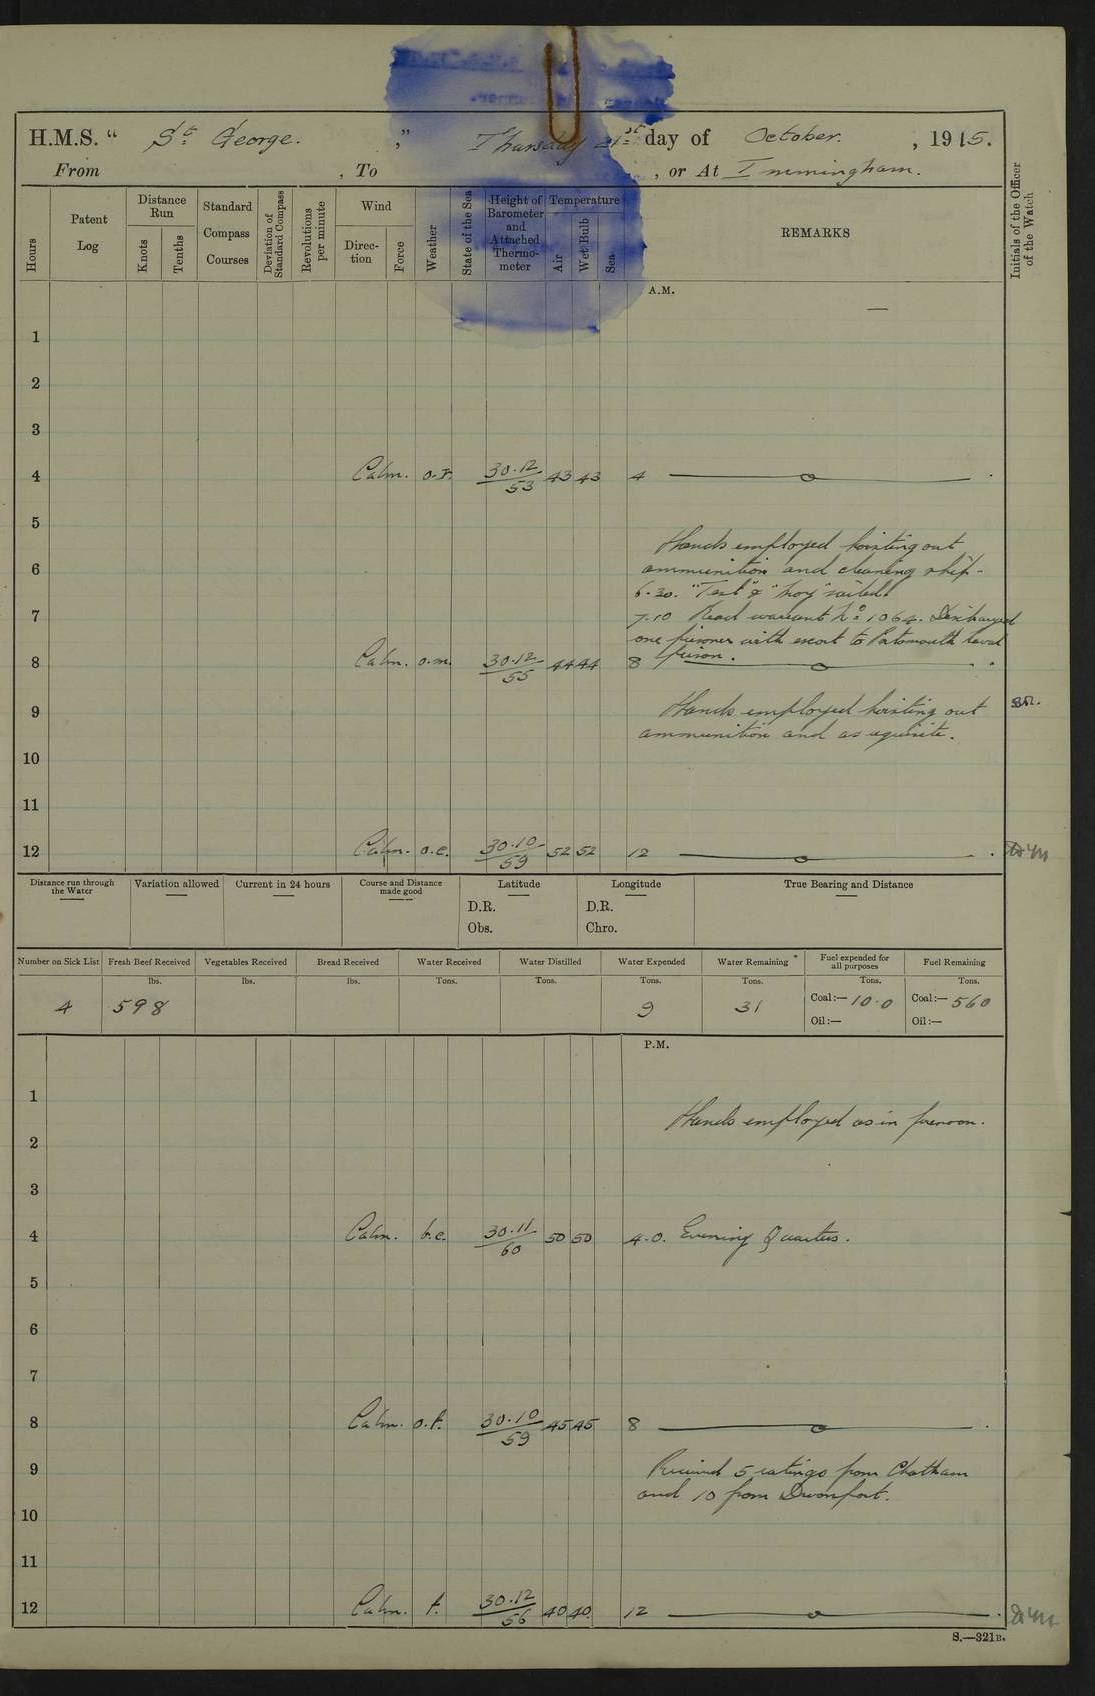 H.M.S. “ St George. ” Thursday 21st day of October. , 1915.
From , To , or At Immingham.
Hours
Patent Log
Distance Run
Knots
Tenths
Standard Compass Courses
Deviation of Standard Compass
Revolutions per minute
Wind
Direc-tion
Force
Weather
State of the Sea
Height of Barometer and Attached Thermo-meter
Temperature
Air
Wet Bulb
Sea
REMARKS
Initials of the Officer of the Watch
A.M.
—
1
2
3
4 Calm. 30.12/53 43 43 4
5
Hands employed hoisting out
6 ammunition and cleaning ship.
6.30. "Test" & sailed
7 7.10 Read warrant No 1064. Discharged
one prisoner with escort to Portsmouth Naval
8 Calm. o.m. 30.12/55 44 44 8 Prison.
9 Hands employed hoisting out
ammunition and as requisite.
10
11
12 Calm. o.c. 30.10/59 52 52 12
Distance run through the Water
Variation allowed
Current in 24 hours
Course and Distance made good
Latitude
D.R.
Obs.
Longitude
D.R.
Chro.
True Bearing and Distance
Number on Sick List
Fresh Beef Received
Vegetables Received
Bread Received
Water Received
Water Distilled
Water Expended
Water Remaining *
Fuel expended for all purposes
Fuel Remaining
lbs. lbs. lbs. Tons. Tons. Tons. Tons. Tons. Tons.
4 598 9 31 Coal:— 10.0 Coal:— 560
Oil:— Oil:—
P.M.
1
Hands employed as in forenoon.
2
3
4 Calm. b.c. 30.11/60 50 50 4.0. Evening Quarters.
5
6
7
8 Calm. o.f. 30.10/59 45 45 8
9 Received 5 ratings from Chatham
and 10 from Devonport.
10
11
12 Calm. f. 30.12/56 40 40 12
S.—321B.